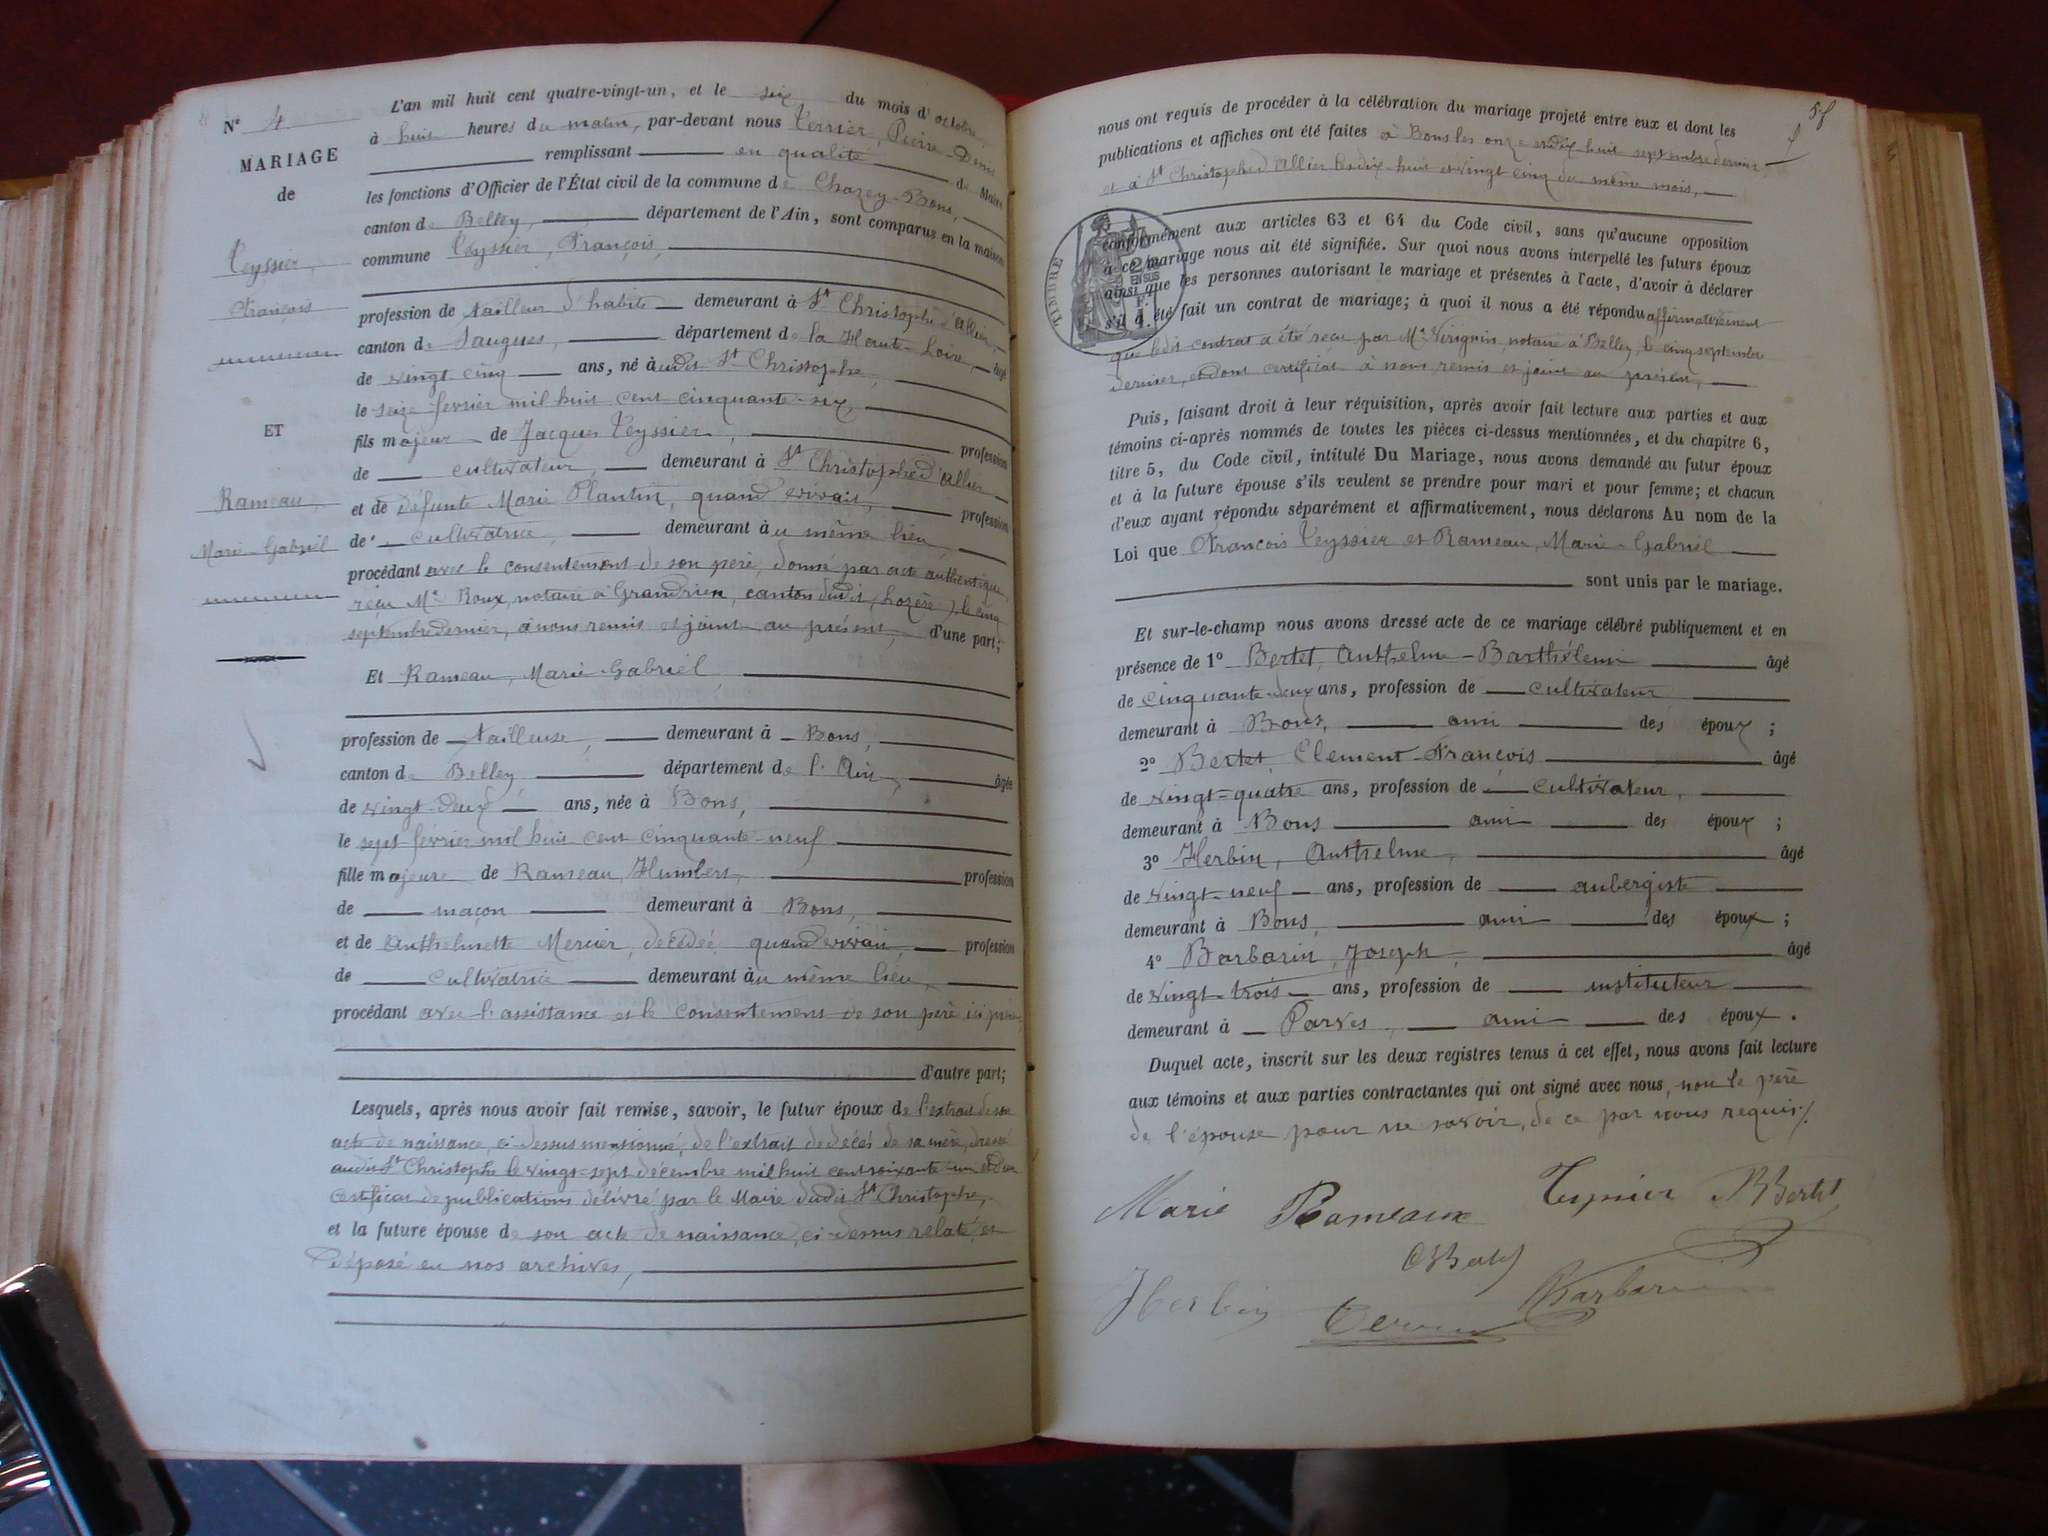 N° 4
MARIAGE
de
Teyssier,
François
ET
Rameau,
Marie-Gabriël
L'an mil huit cent quatre-vingt-un, et le six du mois d'octobre,
à huit heures du matin, par-devant nous Terrier, Pierre-Denis
remplissant en qualité de Maire
les fonctions d'Officier de l'État civil de la commune de Chazey-Bons,
canton de Belley, département de l'Ain, sont comparus en la maison
commune Teyssier, François,
profession de tailleur d'habits demeurant à St Christophe d'Allier,
canton de Saugues, département de la Haute-Loire, âgé
de vingt-cinq ans, né audit St Christophe,
le seize fevrier mil huit cent cinquante-six,
fils majeur de Jacques Teyssier, profession
de cultivateur, demeurant à St Christophe d'allier
et de défunte Marie Plantin, quand vivait, profession
de cultivatrice, demeurant au même lieu,
procédant avec le consentement de son père, donné par acte authentique
reçu Me Roux, notaire à Grandrieu, canton dudit (Lozère) le cinq
septembre dernier, à nous remis et joint au présent, d'une part;
Et Rameau, Marie-Gabriël
profession de tailleuse, demeurant à Bons,
canton de Belley département de l'Ain, âgée
de vingt-deux ans, née à Bons,
le sept fevrier mil huit cent cinquante-neuf
fille majeure de Rameau, Humbert, profession
de maçon demeurant à Bons,
et de Anthelmette Mercier, décédée quand vivait, profession
de cultivatrice demeurant au même lieu,
procédant avec l'assistance et le consentement de son père ici présent,
d'autre part;
Lesquels, après nous avoir fait remise, savoir, le futur époux de l'extrait de son
acte de naissance, ci-dessus mentionné, de l'extrait de décès de sa mère, dressé
audit St Christophe le vingt-sept décembre mil huit cent soixante-un et d'un
certificat de publications délivré par le Maire dudit St Christophe,
et la future épouse de son acte de naissance, ci-dessus relaté, et
déposé en nos archives,
58
nous ont requis de procéder à la célébration du mariage projeté entre eux et dont les
publications et affiches ont été faites à Bons les onze et dix-huit septembre dernier,
et à St Christophe d'Allier les dix-huit et vingt-cinq du même mois,
TIMBRE
conformément aux articles 63 et 64 du Code civil, sans qu'aucune opposition
à ce mariage nous ait été signifiée. Sur quoi nous avons interpellé les futurs époux
ainsi que les personnes autorisant le mariage et présentes à l'acte, d'avoir à déclarer
s'il a été fait un contrat de mariage; à quoi il nous a été répondu affirmativement
que ledit contrat a été reçu par Me Nérignin, notaire à Belley, le cinq septembre
dernier, et dont certificat à nous remis et joint au présent,
Puis, faisant droit à leur réquisition, après avoir fait lecture aux parties et aux
témoins ci-après nommés de toutes les pièces ci-dessus mentionnées, et du chapitre 6,
titre 5, du Code civil, intitulé Du Mariage, nous avons demandé au futur époux
et à la future épouse s'ils veulent se prendre pour mari et pour femme; et chacun
d'eux ayant répondu séparément et affirmativement, nous déclarons Au nom de la
Loi que François Teyssier et Rameau, Marie-Gabriël
sont unis par le mariage.
Et sur-le-champ nous avons dressé acte de ce mariage célébré publiquement et en
présence de 1° Bertet, Anthelme-Barthélemi âgé
de cinquante-deux ans, profession de cultivateur
demeurant à Bons, ami des époux ;
2° Bertet, Clement-François âgé
de vingt-quatre ans, profession de cultivateur,
demeurant à Bons ami des époux ;
3° Herbin, Anthelme, âgé
de vingt-neuf ans, profession de aubergiste
demeurant à Bons, ami des époux ;
4° Barbarin, Joseph, âgé
de vingt-trois ans, profession de instituteur
demeurant à Parves, ami des époux.
Duquel acte, inscrit sur les deux registres tenus à cet effet, nous avons fait lecture
aux témoins et aux parties contractantes qui ont signé avec nous, non le père
de l'épouse pour ne savoir, de ce par nous requis./.
Marie Rameaux Teyssier Bertet
Herbin Barbarin